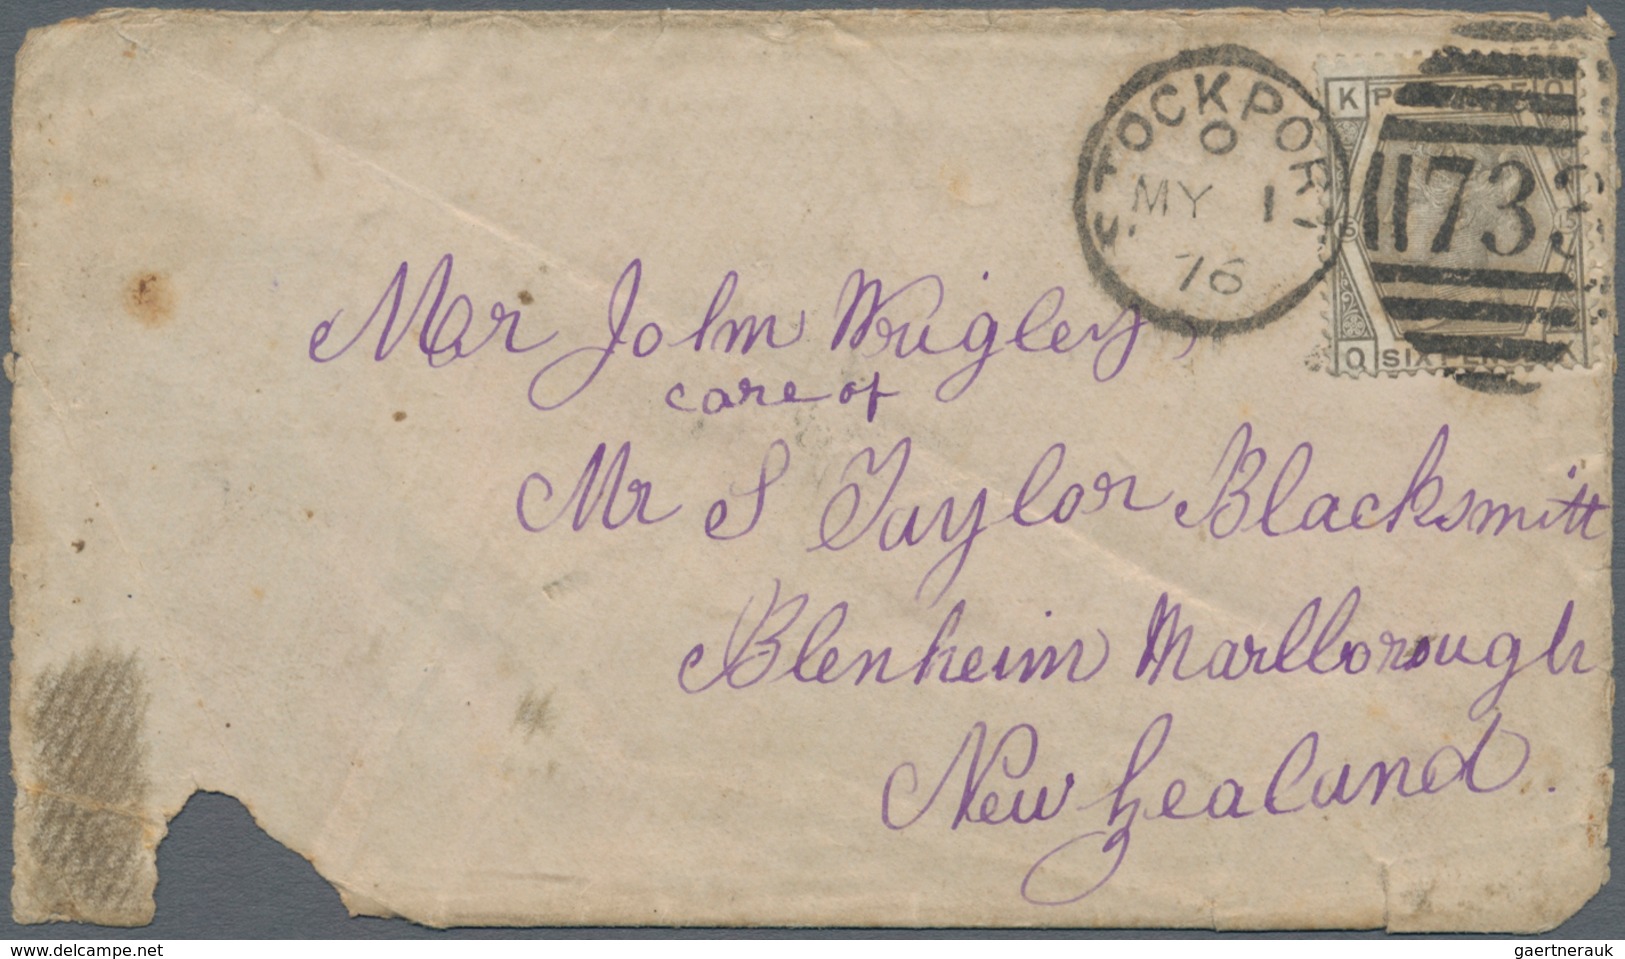 STOCKPORT
O
MY 1
76
K POSTAGE Q
773
15 15
Q SIXPENCE K
Mr John Wrigley
care of
Mr S Taylor Blacksmith
Blenheim Marlborough
New Zealand.
delcampe.com
gaertnerauk